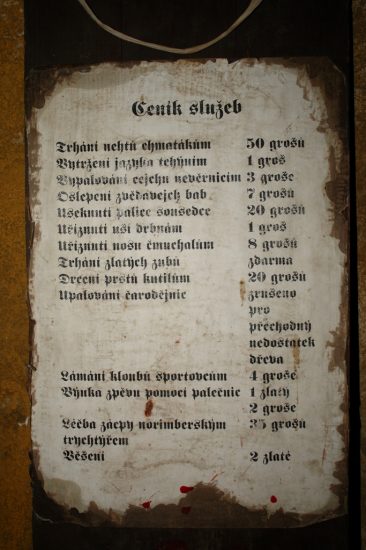 Ceník služeb
Trhání nehtů chmatákům 50 grošů
Vytržení jazyka tchýním 1 groš
Vypalování cejchu nevěrnicím 3 groše
Oslepení zvědavejch bab 7 grošů
Useknutí palice sousedce 20 grošů
Uříznutí uší drbnám 1 groš
Uříznutí nosu čmuchalům 8 grošů
Trhání zlatých zubů zdarma
Drcení prstů kutilům 20 grošů
Upalování čarodějnic zrušeno
pro
přechodný
nedostatek
dřeva
Lámání kloubů sportovcům 4 groše
Výuka zpěvu pomocí palečnic 1 zlatý
2 groše
Léčba zácpy norimberským 35 grošů
trychtýřem
Věšení 2 zlaté